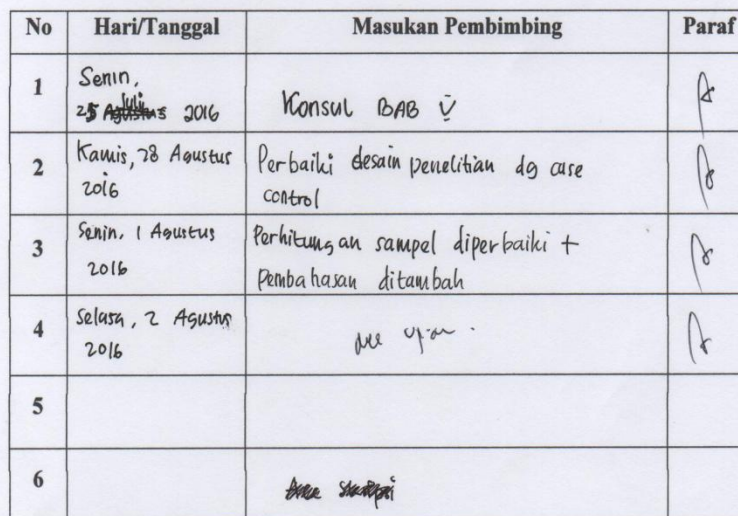 No Hari/Tanggal Masukan Pembimbing Paraf
1 Senin,
25 Juli 2016 Konsul BAB V
2 Kamis, 28 Agustus Perbaiki desain penelitian dg case
2016 control
3 Senin, 1 Agustus Perhitungan sampel diperbaiki +
2016 Pembahasan ditambah
4 Selasa, 2 Agustus
2016
5
6